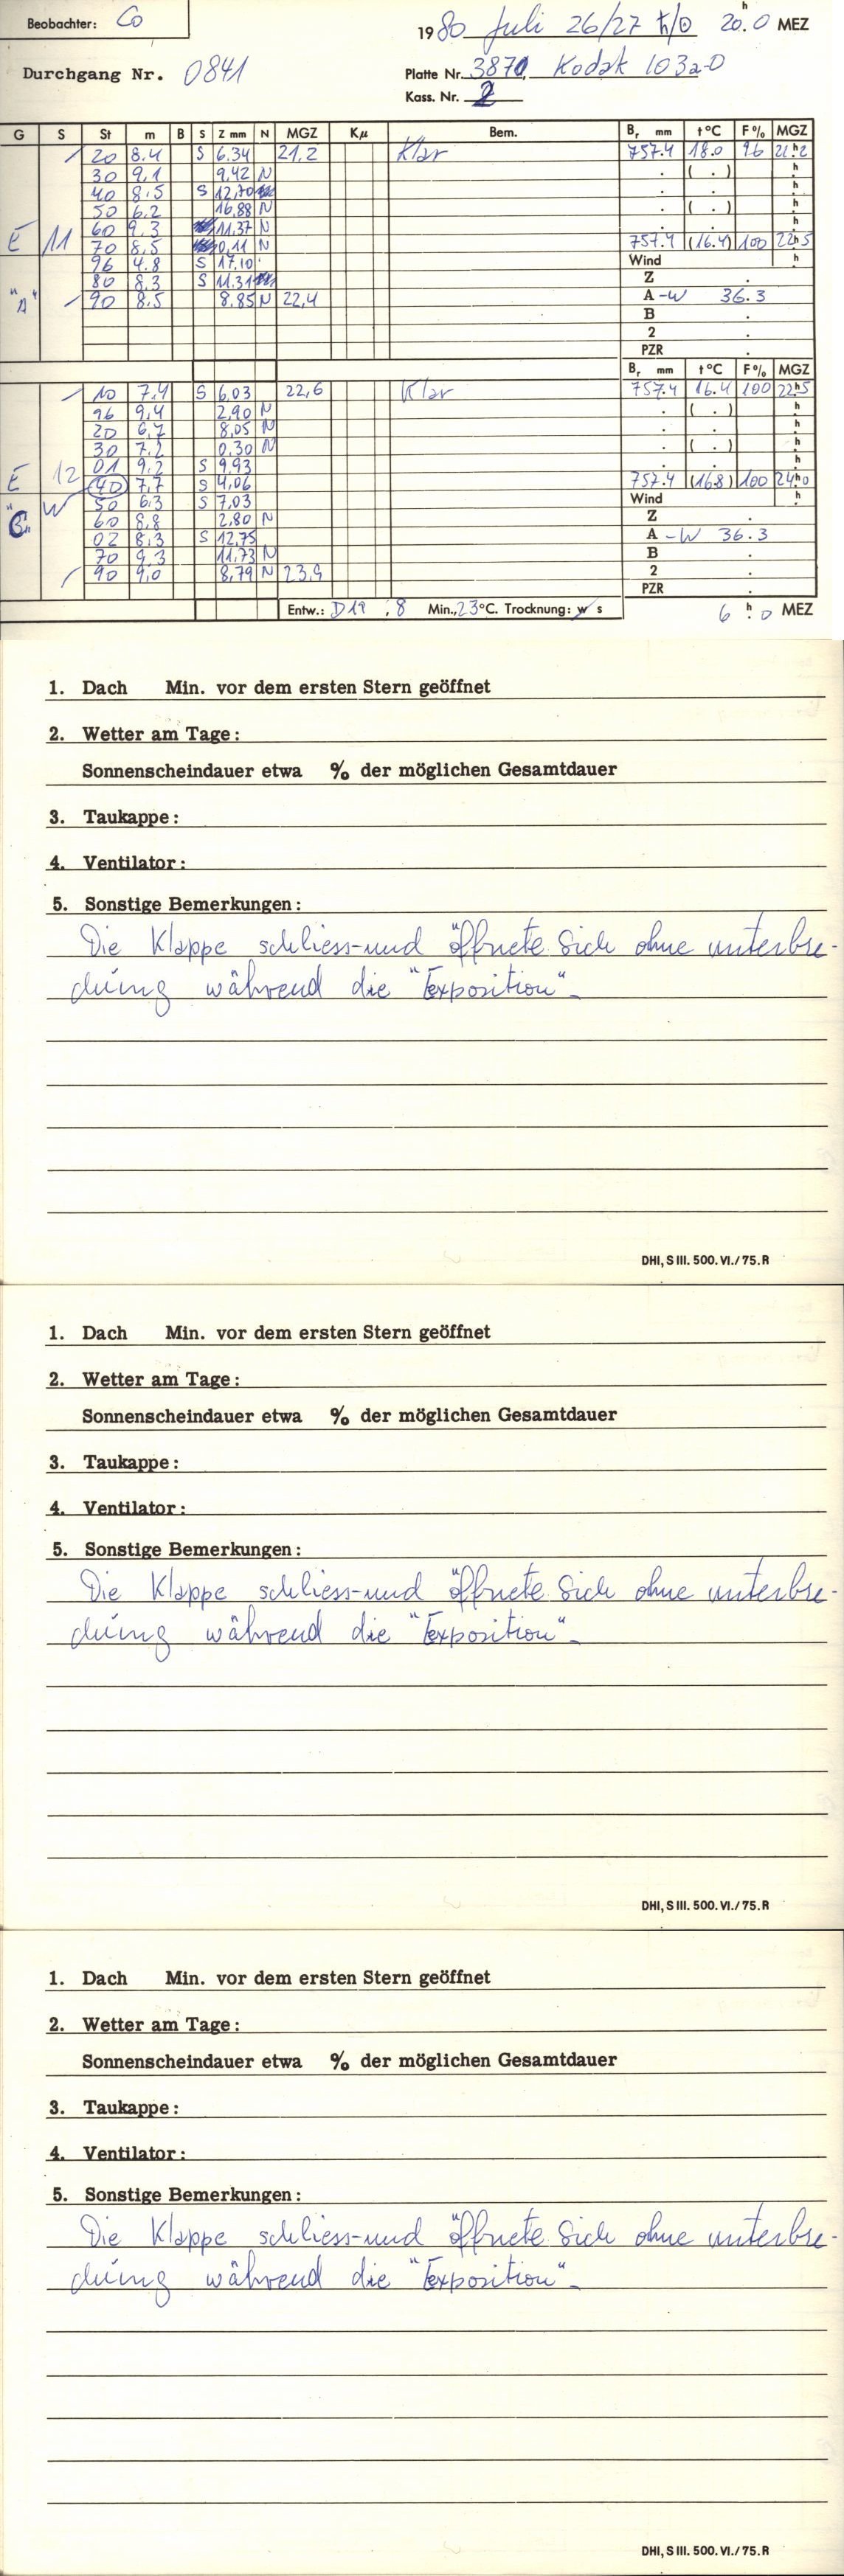 Beobachter: Co
1980 Juli 26/27 ♄/☉ 20.h0 MEZ
Durchgang Nr. 0841
Platte Nr. 3870, Kodak 103a-O
Kass. Nr. 2
G S St m B S Z mm N MGZ Kμ Bem. Br mm t°C F% MGZ
20 8.4 S 6.34 21.2 Klar 757.4 18.0 96 21h2
30 9.1 9.42 N . ( . ) h
40 8.5 S 12.70 . . h
50 6.2 16.88 N . ( . ) h
60 9.3 11.37 N . . h
E 11 70 8.5 0.11 N 757.4 (16.4) 100 22h5
96 4.8 S 17.10 Wind h
80 8.3 S 11.31 Z .
"A" 90 8.5 8.85 N 22,4 A -W 36.3
B .
2 .
PZR .
Br mm t°C F% MGZ
10 7.4 S 6.03 22,6 Klar 757.4 16.4 100 22h5
96 9,4 2,90 N . ( . ) h
20 6,7 8,05 N . . h
30 7.2 0.30 N . ( . ) h
01 9.2 S 9.93 . . h
E 12 40 7,7 S 4,06 757.4 (16.8) 100 24h0
"C" W 50 6.3 S 7,03 Wind h
60 8.8 2,80 N Z .
02 8.3 S 12,75 A -W 36.3
70 9.3 11,73 N B .
90 9,0 8,79 N 23,9 2 .
PZR .
Entw.: D19 ; 8 Min., 23°C. Trocknung: w s 6 h.0 MEZ
1. Dach Min. vor dem ersten Stern geöffnet
2. Wetter am Tage:
Sonnenscheindauer etwa % der möglichen Gesamtdauer
3. Taukappe:
4. Ventilator:
5. Sonstige Bemerkungen:
Die Klappe schliess-und öffnete sich ohne unterbre-
chung während die "Exposition"-
DHI, S III. 500. VI./75. R
1. Dach Min. vor dem ersten Stern geöffnet
2. Wetter am Tage:
Sonnenscheindauer etwa % der möglichen Gesamtdauer
3. Taukappe:
4. Ventilator:
5. Sonstige Bemerkungen:
Die Klappe schliess-und öffnete sich ohne unterbre-
chung während die "Exposition"-
DHI, S III. 500. VI./75. R
1. Dach Min. vor dem ersten Stern geöffnet
2. Wetter am Tage:
Sonnenscheindauer etwa % der möglichen Gesamtdauer
3. Taukappe:
4. Ventilator:
5. Sonstige Bemerkungen:
Die Klappe schliess-und öffnete sich ohne unterbre-
chung während die "Exposition"-
DHI, S III. 500. VI./75. R